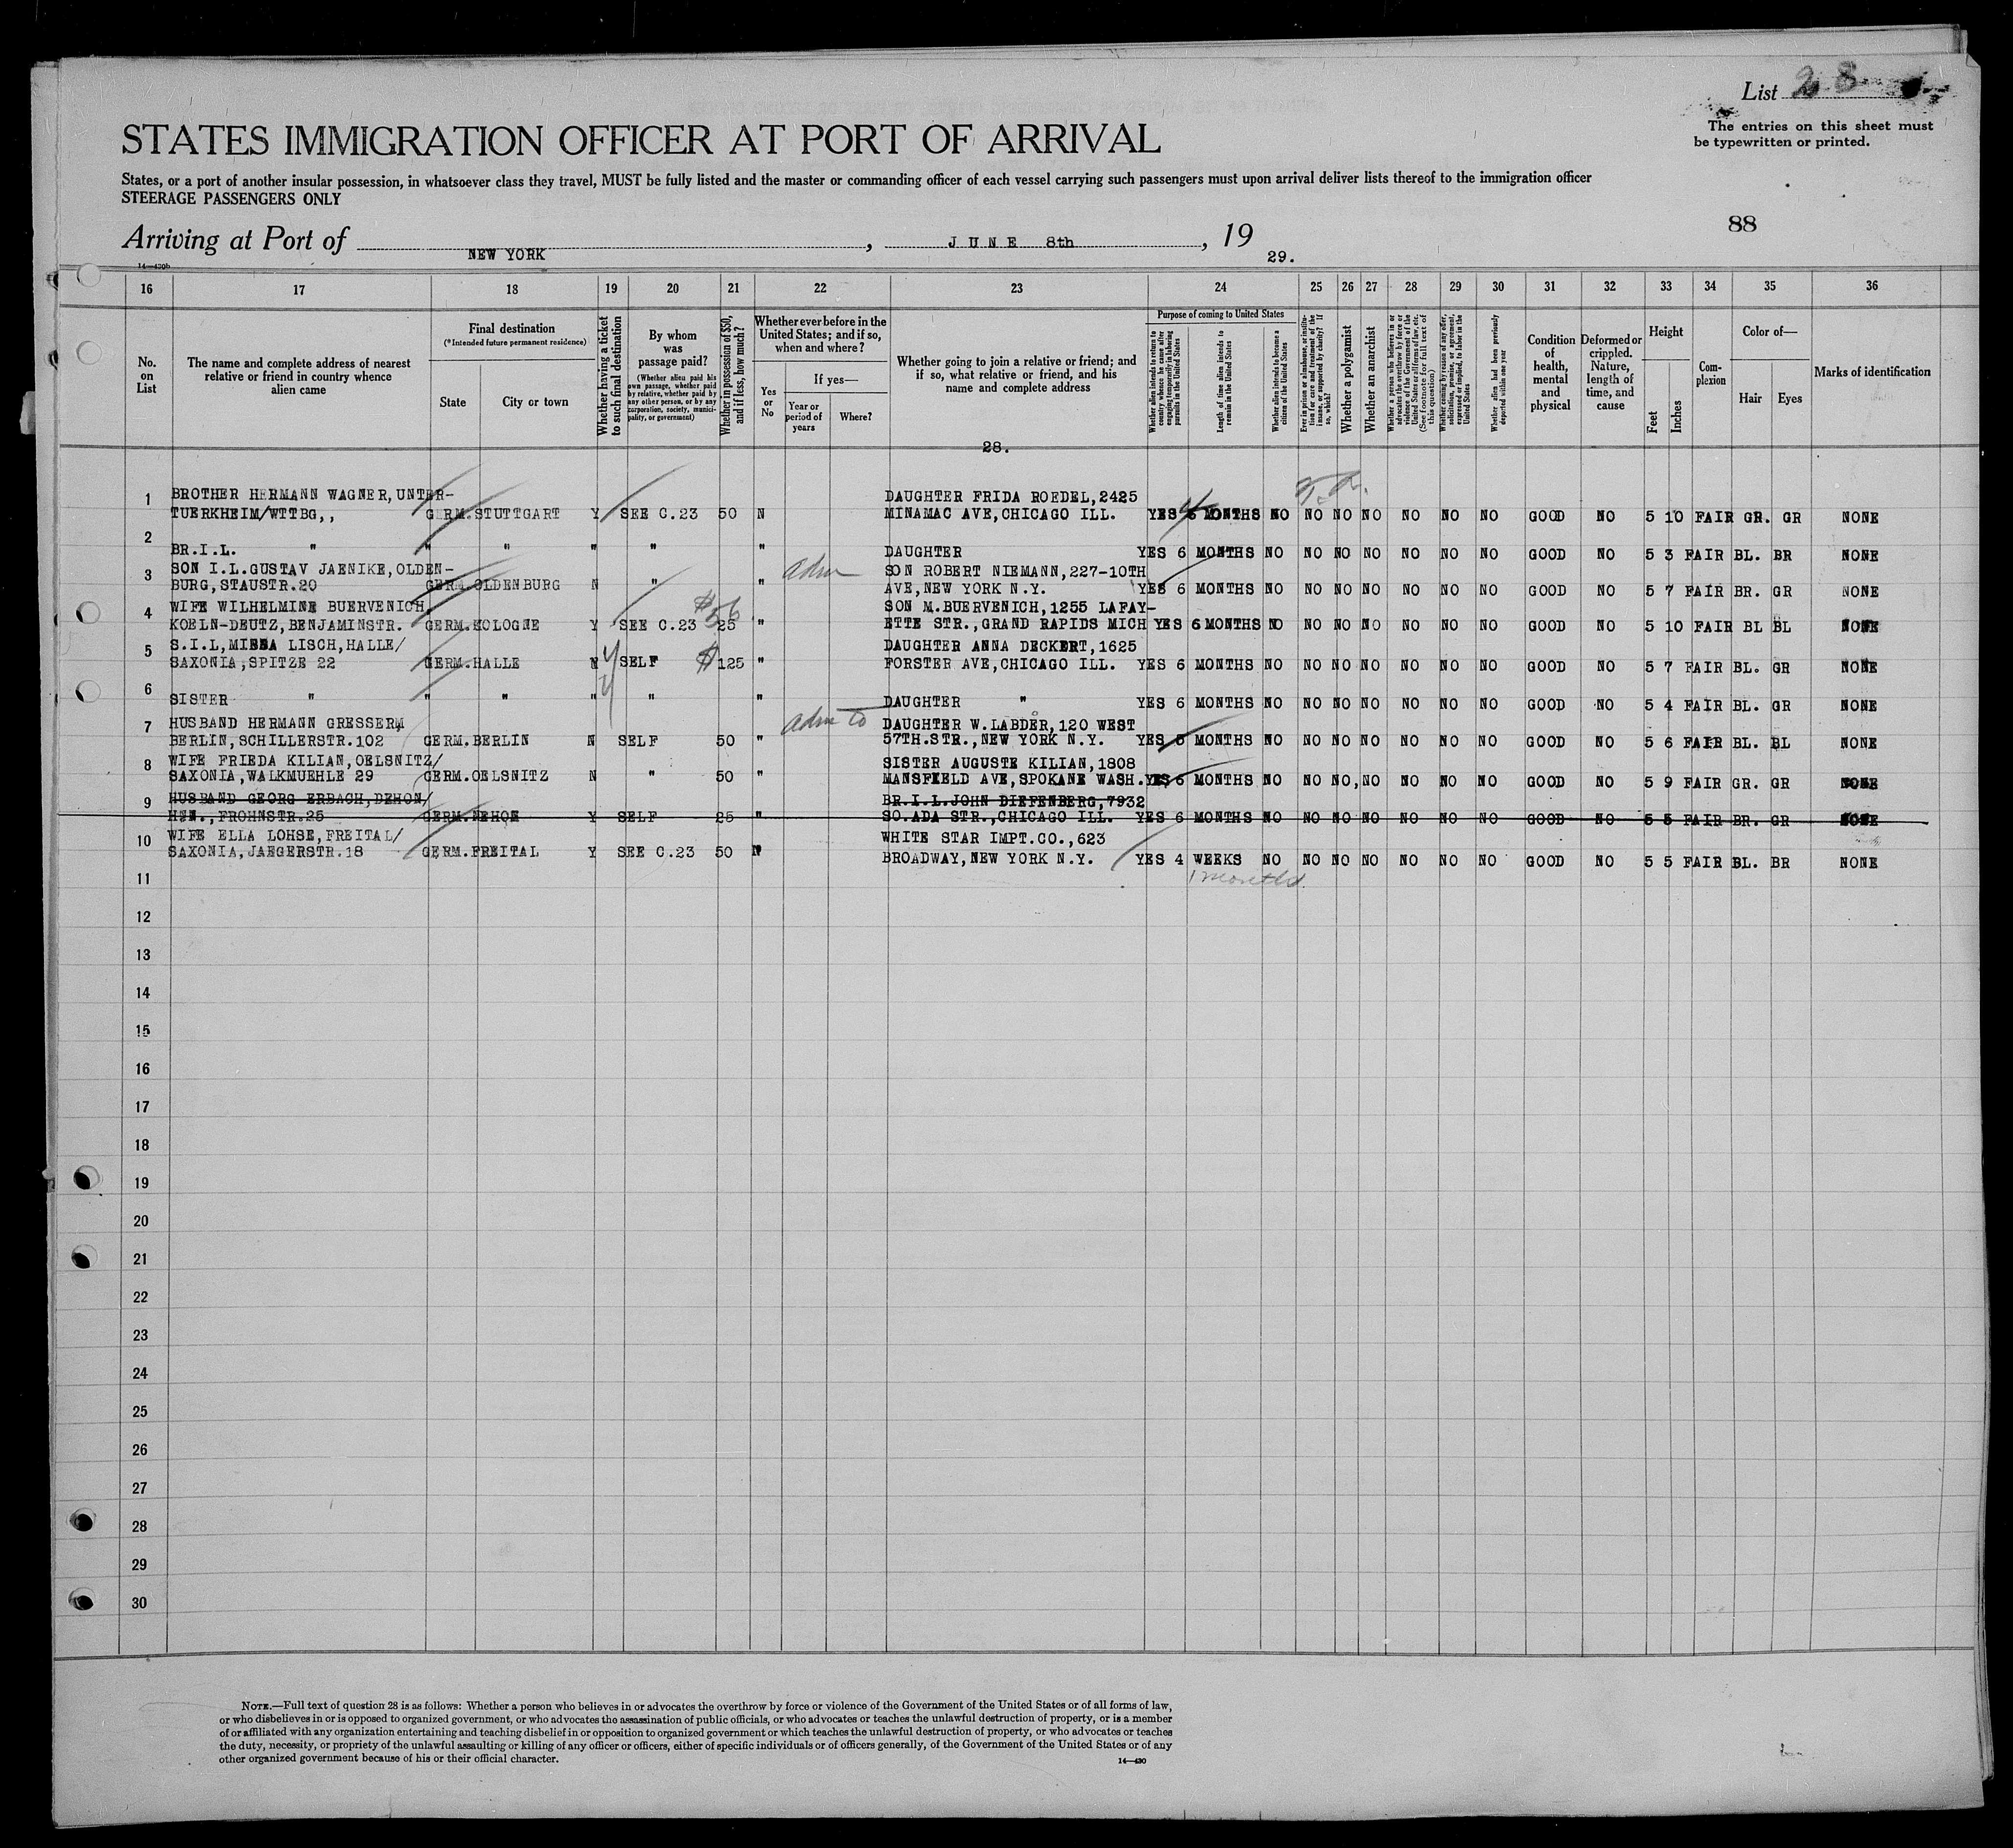 List 28
The entries on this sheet must
be typewritten or printed.
STATES IMMIGRATION OFFICER AT PORT OF ARRIVAL
States, or a port of another insular possession, in whatsoever class they travel, MUST be fully listed and the master or commanding officer of each vessel carrying such passengers must upon arrival deliver lists thereof to the immigration officer
STEERAGE PASSENGERS ONLY
88
Arriving at Port of NEW YORK, JUNE 8th, 1929.
14—430b
16 17 18 19 20 21 22 23 24 25 26 27 28 29 30 31 32 33 34 35 36
No. on List
The name and complete address of nearest relative or friend in country whence alien came
Final destination
(*Intended future permanent residence)
State
City or town
Whether having a ticket to such final destination
By whom was passage paid?
(Whether alien paid his own passage, whether paid by relative, whether paid by any other person, or by any corporation, society, municipality, or government)
Whether in possession of $50, and if less, how much?
Whether ever before in the United States; and if so, when and where?
Yes or No
If yes—
Year or period of years
Where?
Whether going to join a relative or friend; and if so, what relative or friend, and his name and complete address
28.
Purpose of coming to United States
Whether alien intends to return to country whence he came after engaging temporarily in laboring pursuits in the United States
Length of time alien intends to remain in the United States
Whether alien intends to become a citizen of the United States
Ever in prison or almshouse, or institution for care and treatment of the insane, or supported by charity? If so, which?
Whether a polygamist
Whether an anarchist
Whether a person who believes in or advocates the overthrow by force or violence of the Government of the United States or all forms of law, etc. (See footnote for full text of this question)
Whether coming by reason of any offer, solicitation, promise, or agreement, expressed or implied, to labor in the United States
Whether alien had been previously deported within one year
Condition of health, mental and physical
Deformed or crippled. Nature, length of time, and cause
Height
Feet
Inches
Complexion
Color of—
Hair
Eyes
Marks of identification
1 BROTHER HERMANN WAGNER, UNTER- DAUGHTER FRIDA ROEDEL, 2425
TUERKHEIM/WTTBG,, GERM. STUTTGART Y SEE C.23 50 N MINAMAC AVE, CHICAGO ILL. YES 6 MONTHS NO NO NO NO NO NO NO GOOD NO 5 10 FAIR GR. GR NONE
2 BR.I.L. " " " " " " DAUGHTER YES 6 MONTHS NO NO NO NO NO NO NO GOOD NO 5 3 FAIR BL. BR NONE
3 SON I.L. GUSTAV JAENIKE, OLDEN- adm SON ROBERT NIEMANN, 227-10TH
BURG, STAUSTR.20 GERM. OLDENBURG N " " AVE, NEW YORK N.Y. YES 6 MONTHS NO NO NO NO NO NO NO GOOD NO 5 7 FAIR BR. GR NONE
4 WIFE WILHELMINE BUERVENICH, $56 SON M. BUERVENICH, 1255 LAFAY-
KOELN-DEUTZ, BENJAMINSTR. GERM. KOLOGNE Y SEE C.23 25 " ETTE STR., GRAND RAPIDS MICH YES 6 MONTHS NO NO NO NO NO NO NO GOOD NO 5 10 FAIR BL BL NONE
5 S.I.L, MINNA LISCH, HALLE/ DAUGHTER ANNA DECKERT, 1625
SAXONIA, SPITZE 22 GERM. HALLE N y SELF $125 " FORSTER AVE, CHICAGO ILL. YES 6 MONTHS NO NO NO NO NO NO NO GOOD NO 5 7 FAIR BL. GR NONE
6 SISTER " " " " y " " DAUGHTER " YES 6 MONTHS NO NO NO NO NO NO NO GOOD NO 5 4 FAIR BL. GR NONE
7 HUSBAND HERMANN GRESSERM, adm to DAUGHTER W. LABDER, 120 WEST
BERLIN, SCHILLERSTR.102 GERM. BERLIN N SELF 50 " 57TH.STR., NEW YORK N.Y. YES 6 MONTHS NO NO NO NO NO NO NO GOOD NO 5 6 FAIR BL. BL NONE
8 WIFE FRIEDA KILIAN, OELSNITZ/ SISTER AUGUSTE KILIAN, 1808
SAXONIA, WALKMUEHLE 29 GERM. OELSNITZ N " 50 " MANSFIELD AVE, SPOKANE WASH. YES 6 MONTHS NO NO NO, NO NO NO NO GOOD NO 5 9 FAIR GR. GR NONE
9 HUSBAND GEORG ERBACH, DEHON/ BR.I.L. JOHN DIEFENBERG, 7932
FROHNSTR.25 GERM. Y SELF 25 " SO.ADA STR., CHICAGO ILL. YES 6 MONTHS NO NO NO NO NO NO NO GOOD NO 5 5 FAIR BR. GR NONE
10 WIFE ELLA LOHSE, FREITAL/ WHITE STAR IMPT.CO., 623
SAXONIA, JAEGERSTR.18 GERM. FREITAL Y SEE C.23 50 N BROADWAY, NEW YORK N.Y. YES 4 WEEKS NO NO NO NO NO NO NO GOOD NO 5 5 FAIR BL. BR NONE
1 months
11
12
13
14
15
16
17
18
19
20
21
22
23
24
25
26
27
28
29
30
NOTE.—Full text of question 28 is as follows: Whether a person who believes in or advocates the overthrow by force or violence of the Government of the United States or of all forms of law,
or who disbelieves in or is opposed to organized government, or who advocates the assassination of public officials, or who advocates or teaches the unlawful destruction of property, or is a member
of or affiliated with any organization entertaining and teaching disbelief in or opposition to organized government or which teaches the unlawful destruction of property, or who advocates or teaches
the duty, necessity, or propriety of the unlawful assaulting or killing of any officer or officers, either of specific individuals or of officers generally, of the Government of the United States or of any
other organized government because of his or their official character.
14—430